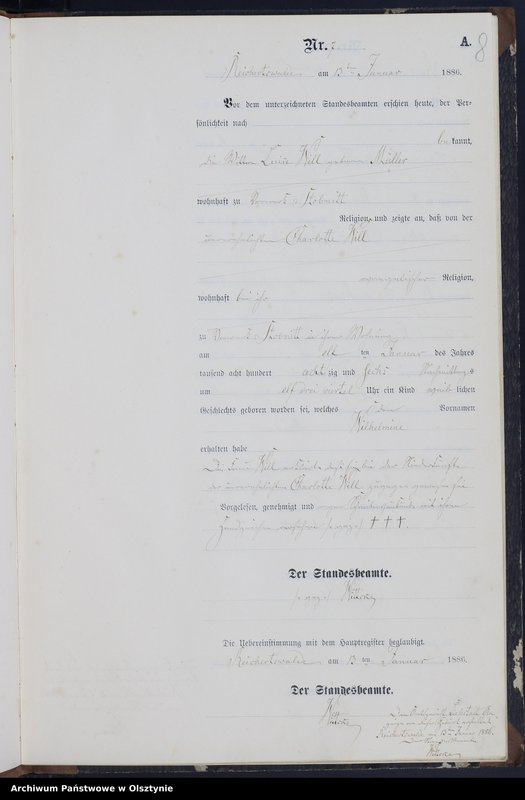 A.
8
Nr. 7.
Reichertswalde am 13ten Januar 1886.
Vor dem unterzeichneten Standesbeamten erschien heute, der Per-
sönlichkeit nach
bekannt,
die Louise Will geborene Müller
wohnhaft zu Stobnitt
Religion, und zeigte an, daß von der
unverehelichten Charlotte Will
evangelischer Religion,
wohnhaft bei ihr
zu Stobnitt in ihrer Wohnung
am elf ten Januar des Jahres
tausend acht hundert achtzig und sechs Nachmittags
um elf drei viertel Uhr ein Kind weiblichen
Geschlechts geboren worden sei, welches den Vornamen
Wilhelmine
erhalten habe
Die Will erklärte daß sie bei der Niederkunft
der unverehelichten Charlotte Will zugegen gewesen sei
Vorgelesen, genehmigt und wegen Schreibensunkunde mit ihrem
Handzeichen versehen † † †.
Der Standesbeamte.
Die Uebereinstimmung mit dem Hauptregister beglaubigt.
Reichertswalde am 13ten Januar 1886.
Der Standesbeamte.
Reichertswalde 13ten Januar 1886.
Archiwum Państwowe w Olsztynie